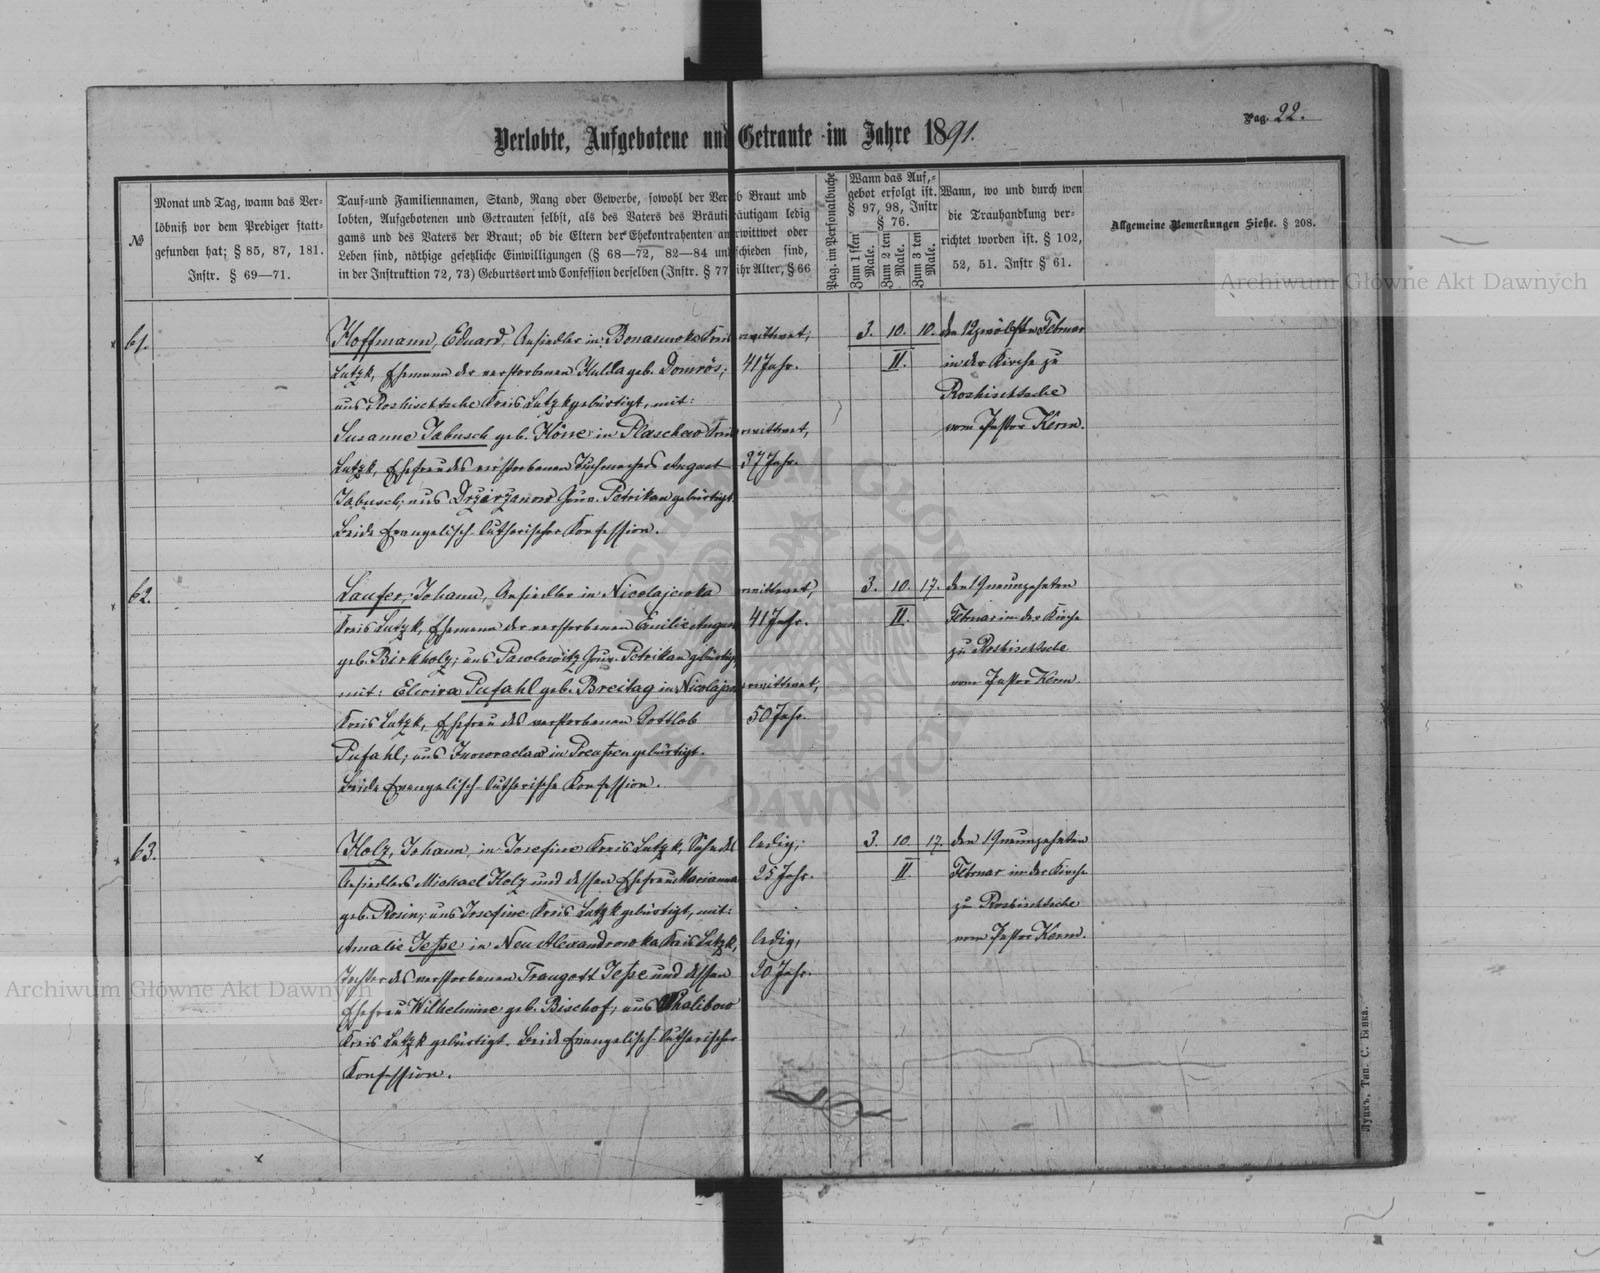 Pag. 22.
Verlobte, Aufgebotene und Getraute im Jahre 1891.
№
Monat und Tag, wann das Ver-
löbniß vor dem Prediger statt-
gefunden hat; § 85, 87, 181.
Instr. § 69—71.
Tauf-und Familiennamen, Stand, Rang oder Gewerbe, sowohl der Ver-
lobten, Aufgebotenen und Getrauten selbst, als des Vaters des Bräuti-
gams und des Vaters der Braut; ob die Eltern der Ehekontrahenten am
Leben sind, nöthige gesetzliche Einwilligungen (§ 68—72, 82—84 und
in der Instruktion 72, 73) Geburtsort und Confession derselben (Instr. § 77
ob Braut und
Bräutigam ledig
verwittwet oder
geschieden sind,
ihr Alter, § 66
Pag. im Personalbuche
Wann das Auf-
gebot erfolgt ist.
§ 97, 98, Instr
§ 76.
Zum 1 sten Male.
Zum 2 ten Male.
Zum 3 ten Male.
Wann, wo und durch wen
die Trauhandlung ver-
richtet worden ist. § 102,
52, 51. Instr § 61.
Allgemeine Bemerkungen Siehe. § 208.
Archiwum Główne Akt Dawnych
61.
Hoffmann, Eduard, Ansiedler in Kreis
Lutzk, Ehemann der verstorbenen Hulda geb. Domrös;
aus Roshischtsche Kreis Lutzk gebürtigt, mit:
Susanne Jabusch geb. Höne in Kreis
Lutzk, Ehefrau des verstorbenen Tuchmachers August
Jabusch; aus Gouv. Petrikau gebürtigt
Beide Evangelisch-lutherischer Konfession.
verwittwet,
41 Jahr.
verwittwet,
37 Jahr.
3. 10. 10.
II.
den 12 zwölften Februar
in der Kirche zu
Roshischtsche
vom Pastor Kerm.
62.
Laufer, Johann, Ansiedler in Nicolajewka
Kreis Lutzk, Ehemann der verstorbenen Emilie
geb. Birkholz; aus Pawlowitz Gouv. Petrikau gebürtigt
mit: Elwira Pufahl geb. Breitag in Nicolajewka
Kreis Lutzk, Ehefrau des verstorbenen Gottlob
Pufahl; aus Inowraclaw in Preußen gebürtigt.
Beide Evangelisch-lutherische Konfession.
verwittwet,
41 Jahr.
verwittwet,
50 Jahr.
3. 10. 17.
II.
den 19 neunzehnten
Februar in der Kirche
zu Roshischtsche
vom Pastor Kerm.
63.
Holz, Johann, in Josefine Kreis Lutzk, Sohn des
Ansiedlers Michael Holz und dessen Ehefrau Marianna
geb. Rosin; aus Josefine Kreis Lutzk gebürtigt, mit:
Amalie Jeße in Neu Alexandrowka Kreis Lutzk,
Tochter des verstorbenen Traugott Jeße und dessen
Ehefrau Wilhelmine geb. Bischof; aus
Kreis Lutzk gebürtigt. Beide Evangelisch-lutherischer
Konfession.
ledig;
25 Jahr.
ledig,
20 Jahr.
3. 10. 17.
II.
den 19 neunzehnten
Februar in der Kirche
zu Roshischtsche
vom Pastor Kerm.
Archiwum Główne Akt Dawnych
Луцкъ. Тип. С. Бинка.